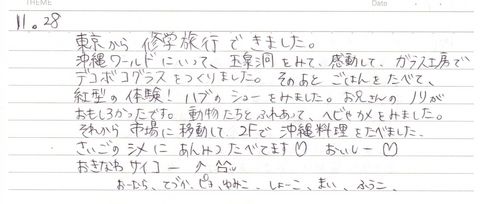 THEME
Date
11.28
東京から修学旅行できました。
沖縄ワールドにいって、玉泉洞をみて、感動して、ガラス工房で
デコボコグラスをつくりました。そのあとごはんをたべて、
紅型の体験！ハブのショーをみました。お兄さんのノリが
おもしろかったです。動物たちとふれあって、ヘビやカメをみました。
それから市場に移動して、2Fで沖縄料理をたべました。
さいごのシメにあんみつたべてます♡おいしー♡
おきなわサイコー
おーむら、てづか、ピヨ、ゆみこ、しょーこ、まい、ふうこ、